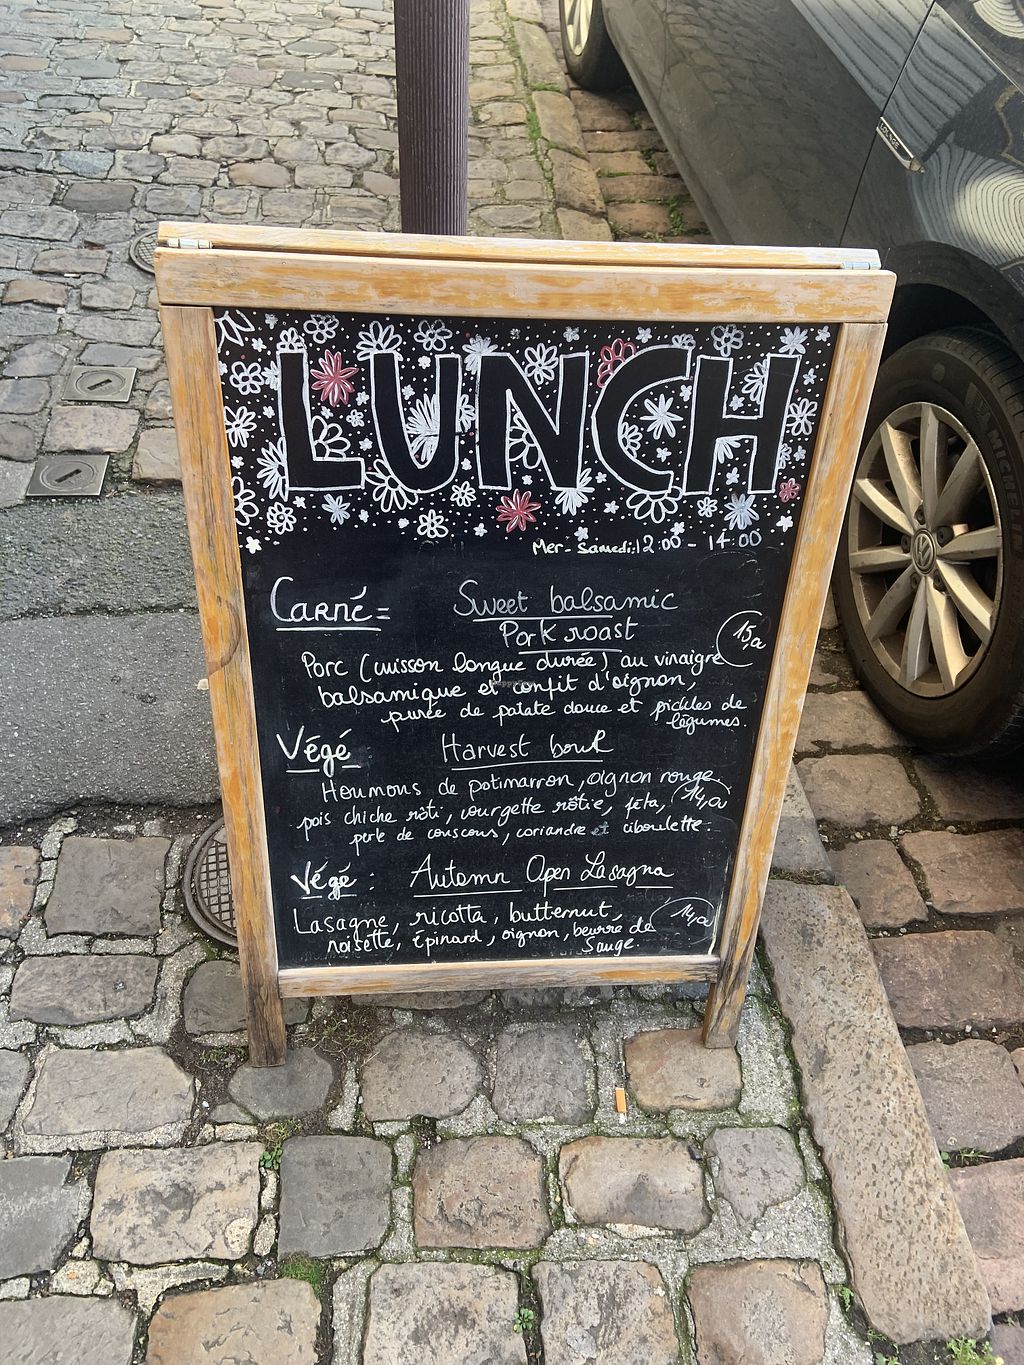 LUNCH
Mer-Samedi:12:00 - 14:00
Carné= Sweet balsamic
Pork roast
15,a
Porc (cuisson longue durée) au vinaigre
balsamique et confit d'oignon,
purée de patate douce et pickles de
légumes.
Végé Harvest bowl
Houmous de potimarron, oignon rouge
pois chiche rôti, courgette rôtie, féta, 14,a
perle de couscous, coriandre et ciboulette.
Végé: Autumn Open Lasagna
Lasagne, ricotta, butternut, 14,a
noisette, épinard, oignon, beurre de
Sauge.
MICHELIN